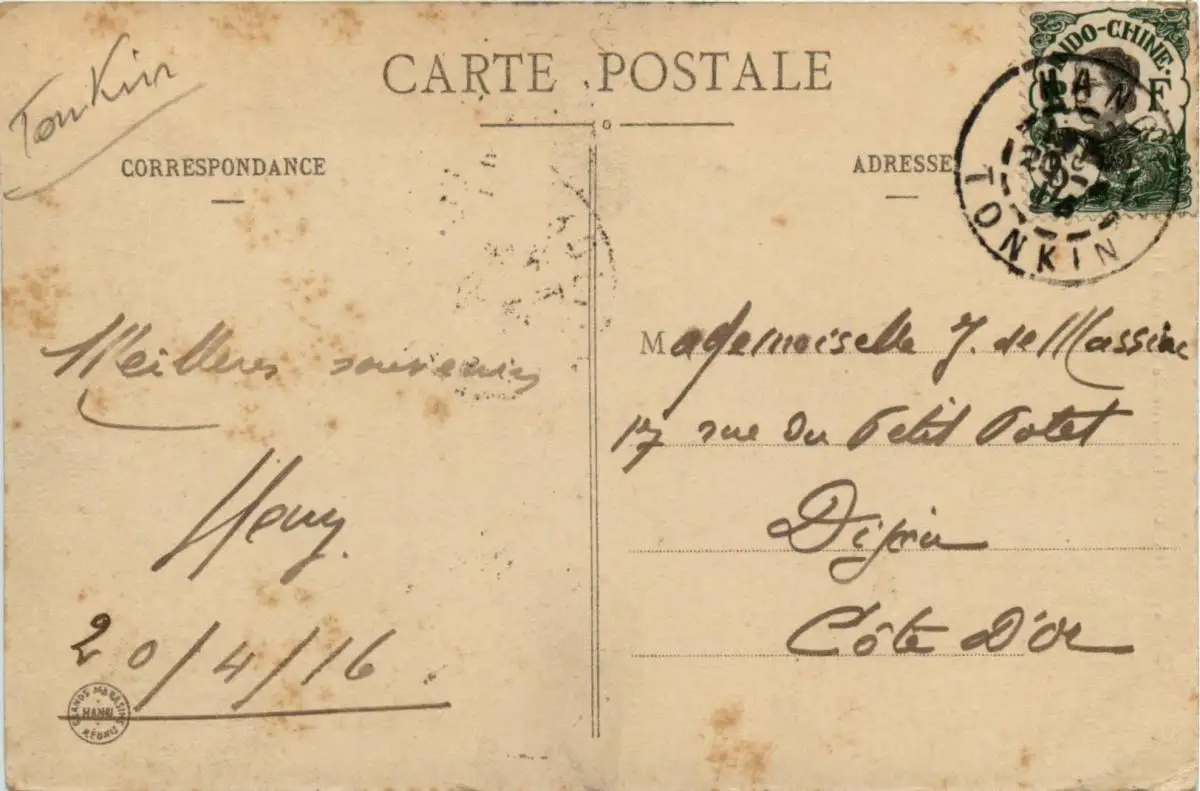 Tonkin
CARTE POSTALE
CORRESPONDANCE
ADRESSE
INDO-CHINE
R F
HANOI
TONKIN
Meilleurs souvenirs
20/4/16.
Mademoiselle J. de Massiac
17 rue du Petit Potet
Dijon
Côte D'or
GRANDS MAGASINS
HANOI
RÉUNIS